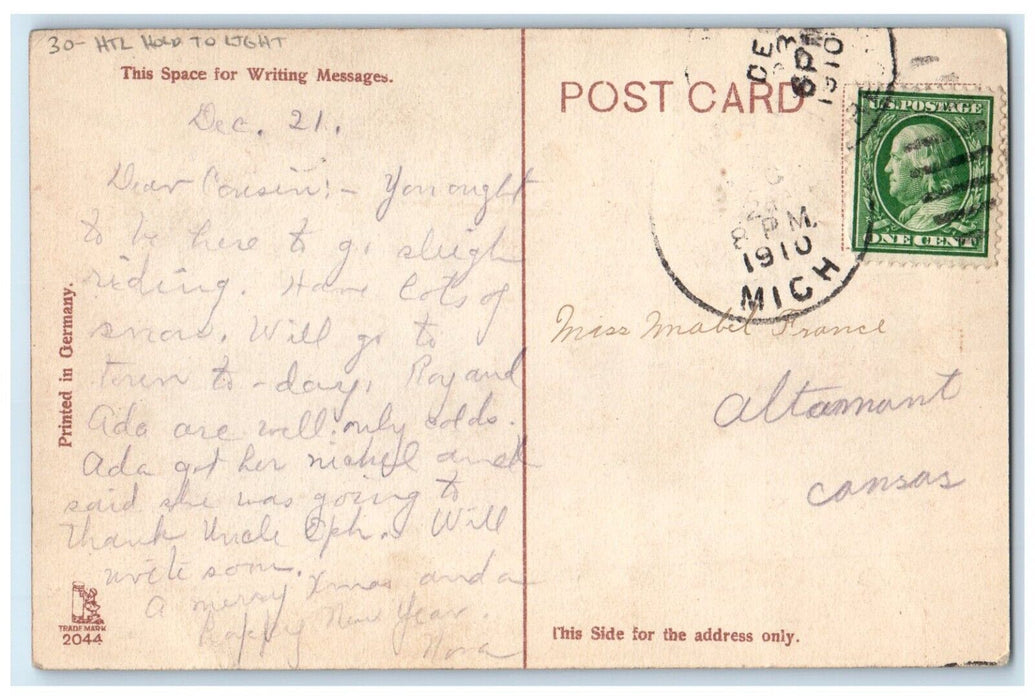 30- HTL HOLD TO LIGHT
This Space for Writing Messages.
Dec. 21.
Dear Cousin:- You ought
to be here to go sleigh
riding. Have lots of
snow. Will go to
town to-day. Roy and
Ada are well: only colds.
Ada got her nickel and
said she was going to
thank Uncle Eph. Will
write soon.
A merry Xmas and a
happy New Year.
Nora
Printed in Germany.
TRADE MARK
2044
POST CARD
DEC
23
6 PM
1910
8 PM.
1910
MICH
U.S. POSTAGE
ONE CENT
Miss Mabel France
Altamant
Cansas
This Side for the address only.